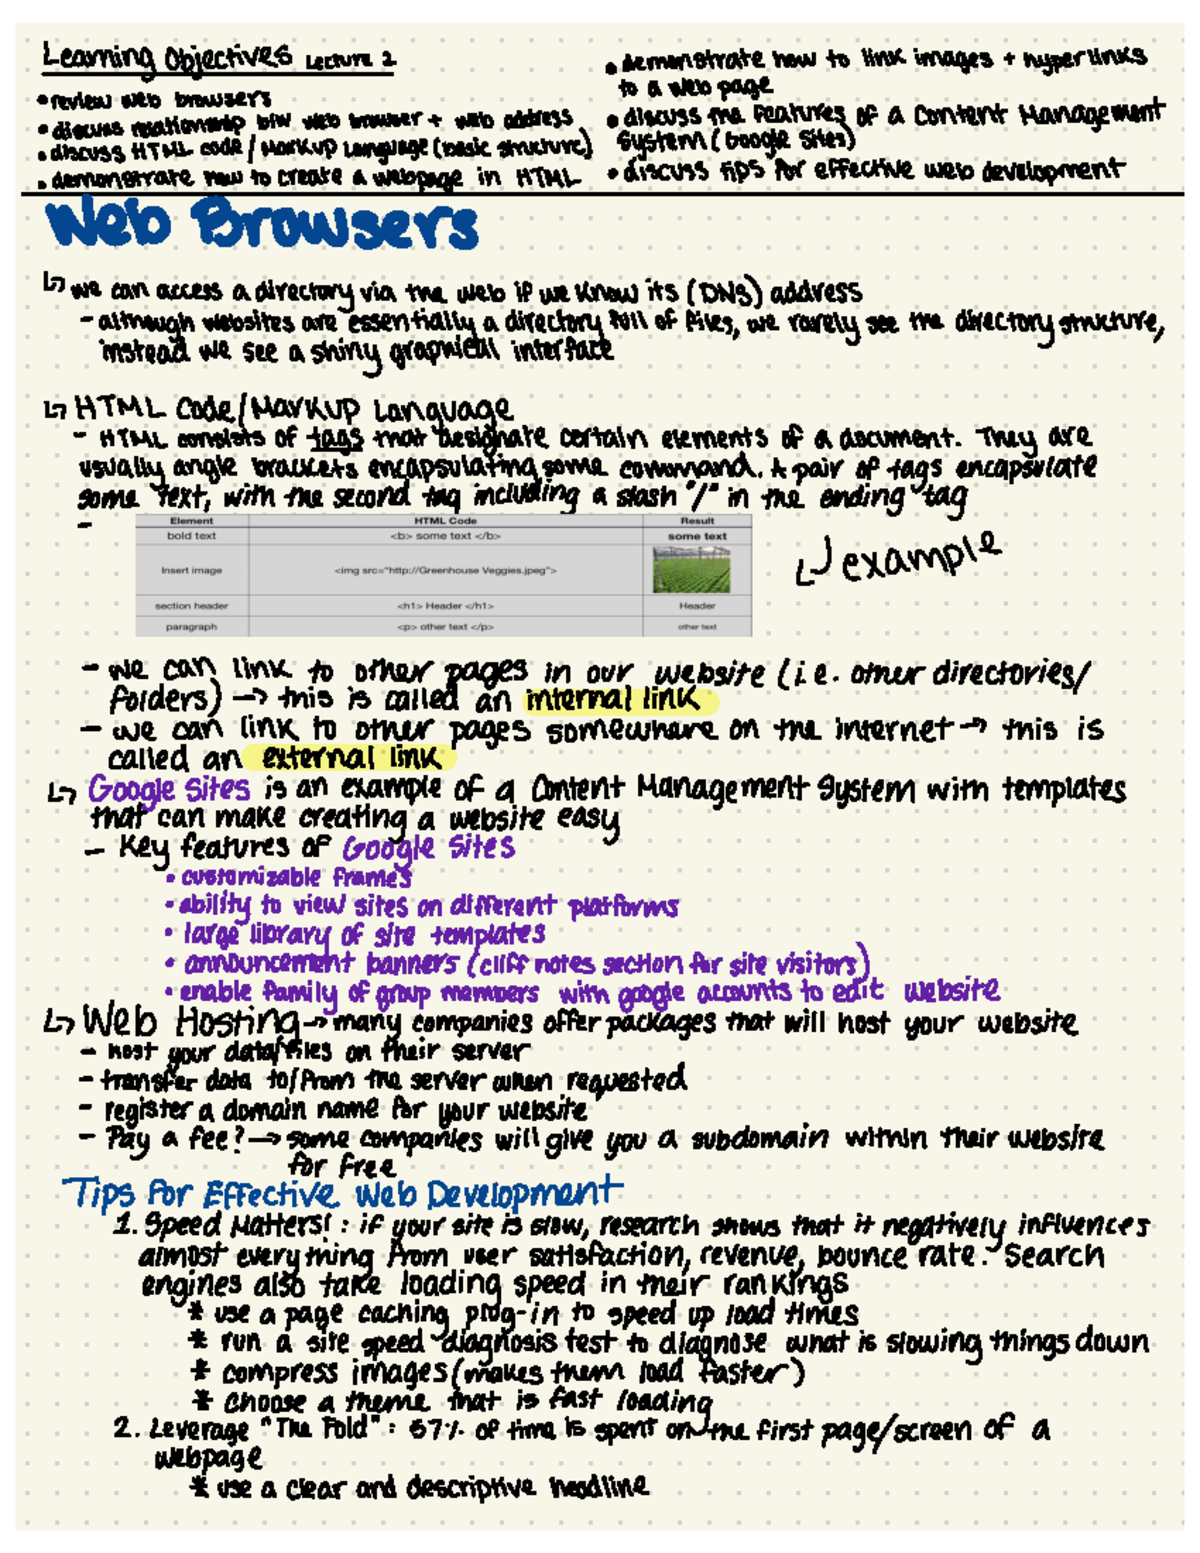 Learning Objectives Lecture 2
• review web browsers
• discuss relationship btw web browser + web address
• discuss HTML code / Markup Language (basic structure)
• demonstrate how to create a webpage in HTML
• demonstrate how to link images + hyperlinks
to a web page
• discuss the features of a Content Management
System (Google Sites)
• discuss tips for effective web development
Web Browsers
↳ we can access a directory via the web if we know its (DNS) address
- although websites are essentially a directory full of files, we rarely see the directory structure,
instead we see a shiny graphical interface
↳ HTML Code/Markup Language
- HTML consists of tags that designate certain elements of a document. They are
usually angle brackets encapsulating some command. A pair of tags encapsulate
some text, with the second tag including a slash "/" in the ending tag
-
Element HTML Code Result
bold text <b> some text </b> some text
Insert image <img src="http://Greenhouse Veggies.jpeg">
section header <h1> Header </h1> Header
paragraph <p> other text </p> other text
↳ example
- we can link to other pages in our website (i.e. other directories/
folders) → this is called an internal link
- we can link to other pages somewhere on the internet → this is
called an external link
↳ Google Sites is an example of a Content Management System with templates
that can make creating a website easy
- Key features of Google Sites
• customizable frames
• ability to view sites on different platforms
• large library of site templates
• announcement banners (cliff notes section for site visitors)
• enable family of group members with google accounts to edit website
↳ Web Hosting → many companies offer packages that will host your website
- host your data/files on their server
- transfer data to/from the server when requested
- register a domain name for your website
- Pay a fee? → some companies will give you a subdomain within their website
for free
Tips for Effective Web Development
1. Speed Matters! : if your site is slow, research shows that it negatively influences
almost everything from user satisfaction, revenue, bounce rate. Search
engines also take loading speed in their rankings
* use a page caching plug-in to speed up load times
* run a site speed diagnosis test to diagnose what is slowing things down
* compress images (makes them load faster)
* choose a theme that is fast loading
2. Leverage "The Fold" : 57% of time is spent on the first page/screen of a
webpage
* use a clear and descriptive headline